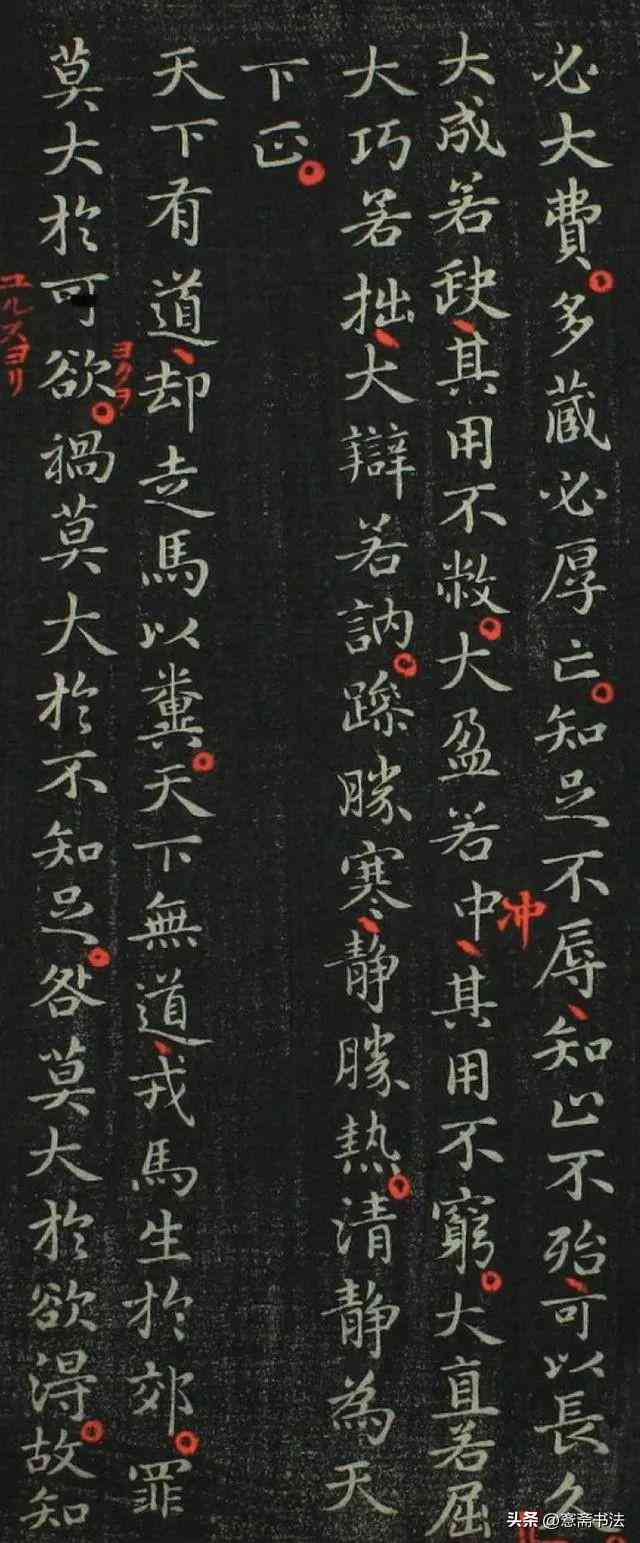 必大費多藏必厚亡知足不辱知止不殆可以長久
大成若缺其用不敝大盈若中其用不窮大直若屈
冲
大巧若拙大辯若訥躁勝寒靜勝熱清靜為天
下正
天下有道却走馬以糞天下無道戎馬生於郊罪
莫大於可欲禍莫大於不知足咎莫大於欲得故知
ヨクヲ
ユルスヨリ
头条 @窓斋书法